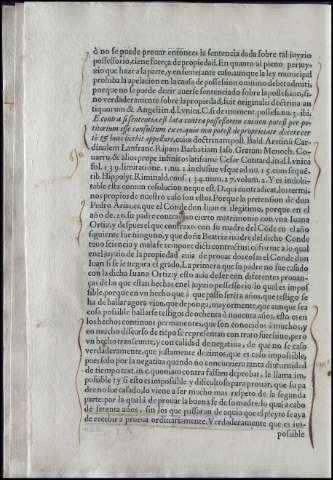 ò no se puede prouar entonces la sentencia dada sobre tal juyzio
possessorio, tiene força de propiedad. En quanto al pleno perjuy
zio que haze a la parte, y en semejante caso, aunque la ley municipal
prohiba la apelacion en la causa de possession o mino debet admitti,
porque no se puede dezir auerse sentenciado sobre la possession, si
no verdaderamente sobre la propiedad, fuit originalis doctrina an
tiquorum &
E contra si sententia est lata contra possessorem cui non potest per pe
titorium esse consultum ex eo quia non potest de proprietate docere
cuius doctrinam post Bald.
dinalem
uarru. & alios prope infinitos latissime
fol. 139. limitatione 1.
tib. Hippolyt. Riminald. cons. 154. num. 27. volum. 2. Y es indubi
table esta comun resolucion ne que est. Di qui contradicat, los termi
nos propios de nuestro caso son estos. Porque la pretension de don
Pedro Arias, es que el Conde don Iuan es ilegitimo, porque en el
año de 20. su padre contraxo cierto matrimonio con vna Iuana
Ortiz, y despues que contraxo con su madre del Cõde en el año
siguiente fue ninguno, y que doña Beatriz madre del dicho Conde
tuuo sciencia y mala fe
enel juyzio de la propiedad auia de prouar dos cosas el Conde don
Iuan si se le negara el grado. La primera que su padre no fue casado
con la dicha Iuana Ortiz y esto auia de ser con diferentes prouan
ças de las que estan hechas en el juyzio possessorio: lo qual es impos
sible, porque en vn hecho que â que passo setenta años, que testigo se
ha de hallar agora viuo, que deponga, mayormente, que aunque sea
cosa possible hallarse testigos de ochenta ò nouenta años, esto es en
los hechos continuos permanentes, que son conocidos â muchos, y
en mucho discurso de tiẽpo se representan con trato succssiuo, pero
vn hecho transeunte, y con calidad de negatiua, de que no se caso
verdaderamente, que justamente diremos, que es caso impossible,
pues solo por la negatiua quando no concurriera tanta diuturnidad
de tiempo text. in c. quoniam contra falsam de probat, le llama im
possible: y si esto es impossible y dificultoso para prouar, que su pa
dre no fue casado, lo viene a ser mucho mas respeto de la segunda
parte: por la qual â de prouar la buena fe de su madre, lo qual a cabo
de setenta años, sin los que passaran de aqui a que el pleyto se aya
de recebir a prueua ordinariamente. Verdaderamente que es im-
possible